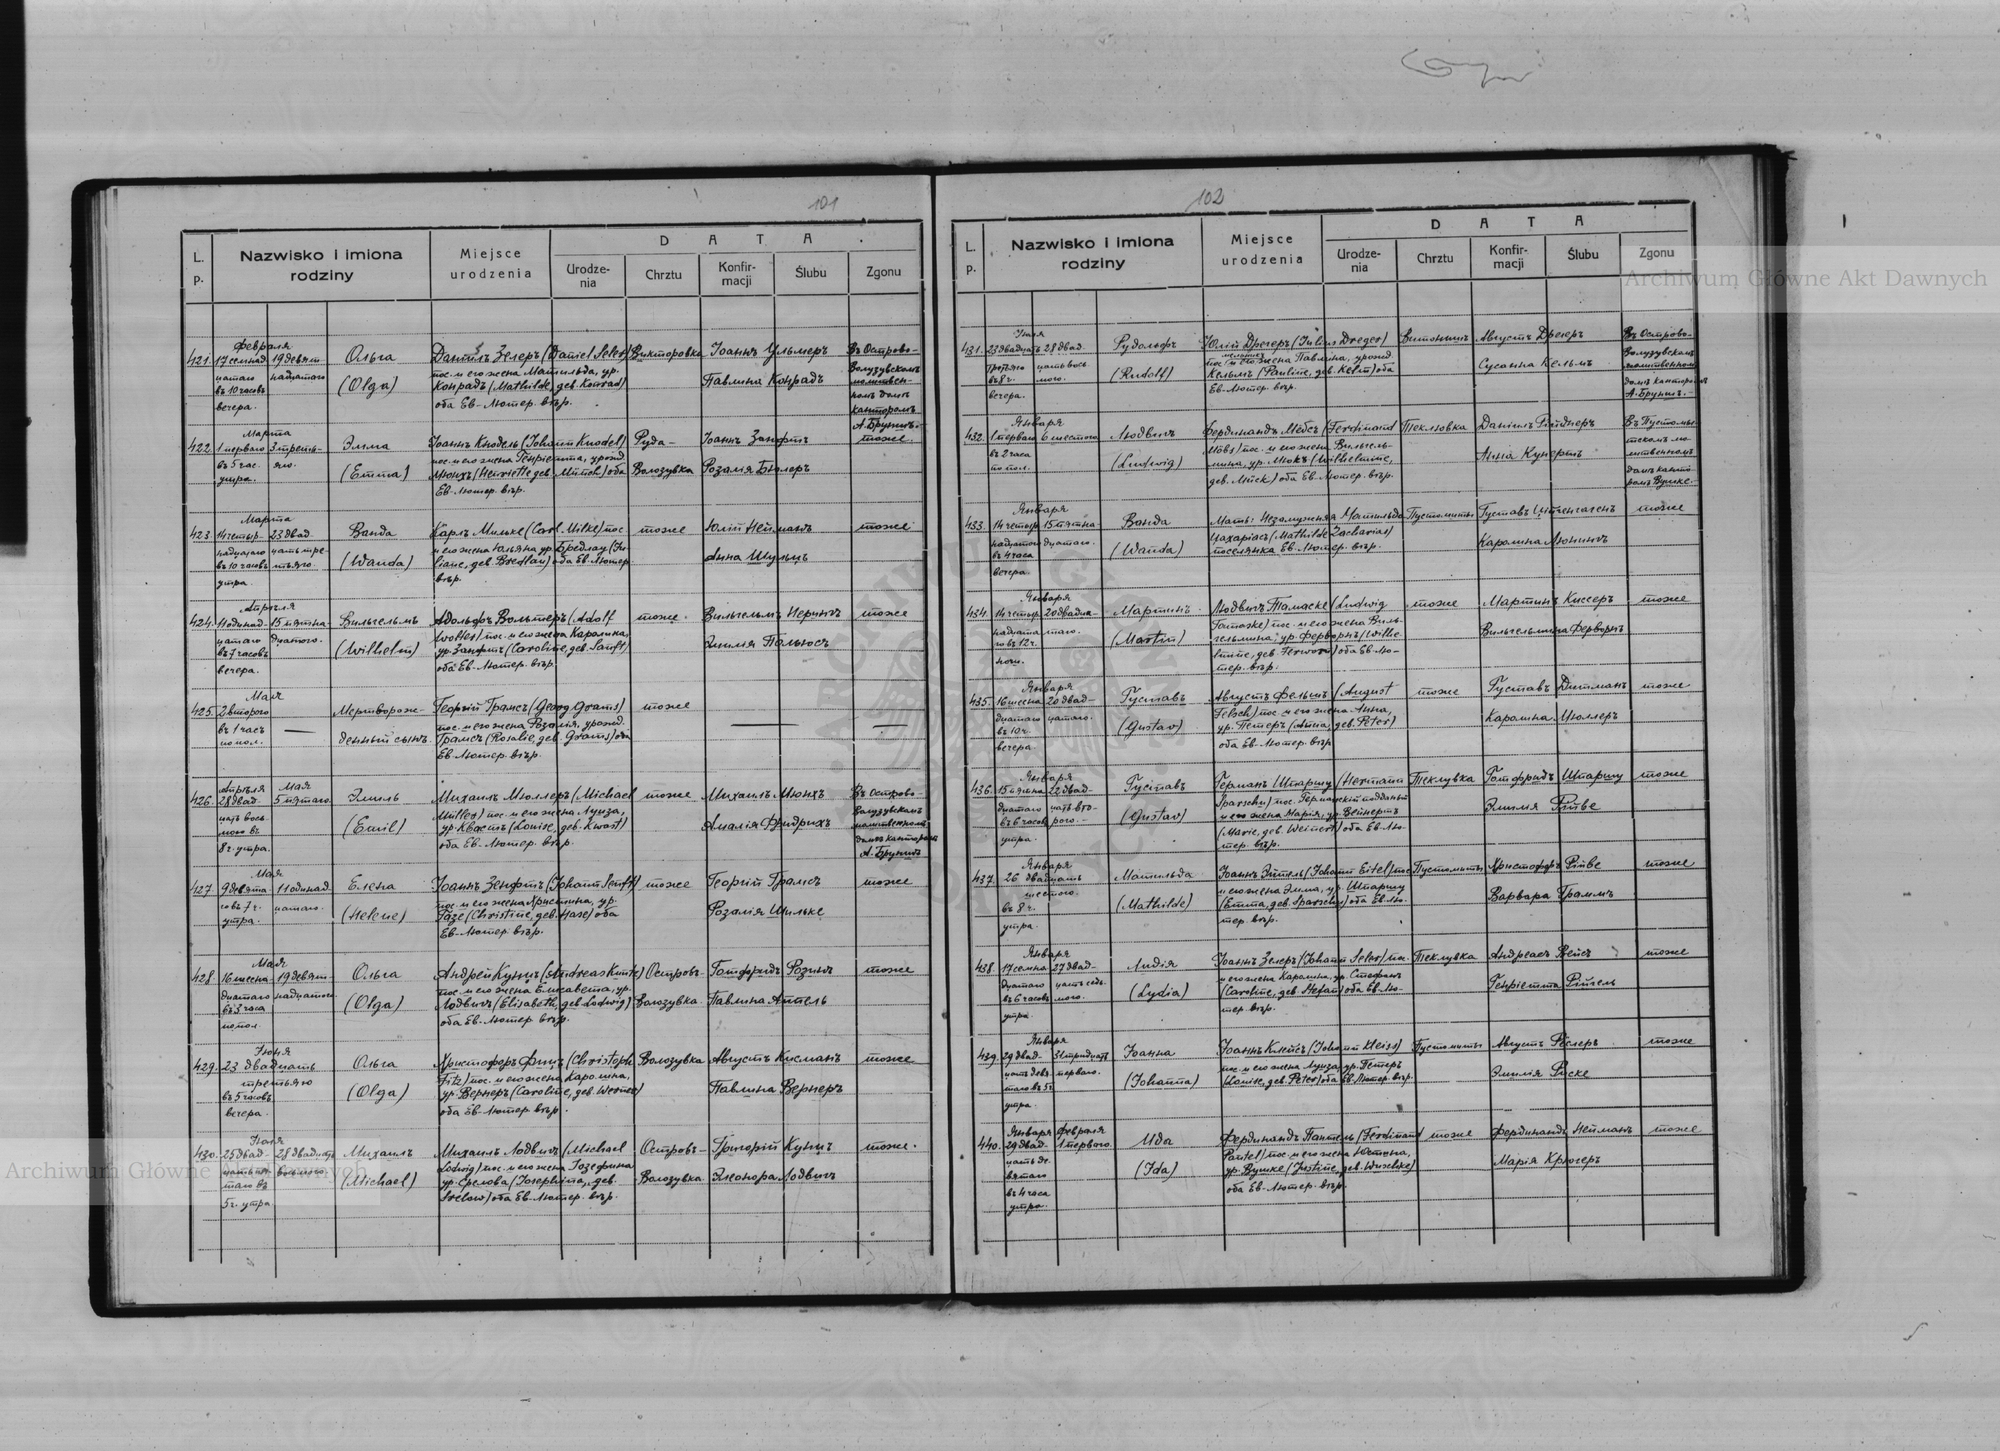 101
L. p.
Nazwisko i imiona rodziny
Miejsce urodzenia
D A T A
Urodze-nia
Chrztu
Konfir-macji
Ślubu
Zgonu
421.
Февраля
17 семнад 19 девят
цатаго надцатаго
въ 10 часовъ
вечера.
Ольга
(Olga)
Даніилъ Зелеръ (Daniel Seler)
пос. и его жена Матильда, ур.
Конрадъ (Mathilde, geb. Konrad)
оба Ев.-Лютер. вѣр.
Викторовка
Іоаннъ Ульмеръ
Павлина Конрадъ
Въ Острово-
Волузувскомъ
молитвен-
номъ домѣ
канторомъ
А. Брунингъ.
422.
Марта
1 перваго 3 треть-
въ 5 час. яго.
утра.
Эмма
(Emma)
Іоаннъ Кнодель (Johann Knodel)
пос. и его жена Генріетта, урожд.
Мюнхъ (Henriette geb. Münch) оба
Ев. Лютер. вѣр.
Руда-
Волозувка
Іоаннъ Занфтъ
Розалія Бюлеръ
тоже.
423.
Марта
14 четыр- 23 двад-
надцатаго цать тре-
въ 10 часовъ тьяго.
утра.
Ванда
(Wanda)
Карлъ Мильке (Carl Milke) пос.
и его жена Юльяна ур. Бредлау (Ju-
liane, geb. Bredlau) оба Ев. Лютер.
вѣр.
тоже
Юлій Нейманъ
Анна Шульцъ
тоже
424.
Апрѣля
11 одинад- 15 пятна-
цатаго дцатаго.
въ 7 часовъ
вечера.
Вильгельмъ
(Wilhelm)
Адольфъ Вольтеръ (Adolf
Wolter) пос. и его жена Каролина,
ур. Занфтъ (Caroline, geb. Sanft)
оба Ев. Лютер. вѣр.
тоже.
Вильгельмъ Нерингъ
Эмилія Пальюсъ
тоже
425.
Мая
2 второго
въ 1 часъ
по пол.
Мертворож-
денный сынъ.
Георгій Грамсъ (Georg Grams)
пос. и его жена Розалія, урожд.
Грамсъ (Rosalie, geb. Grams) оба
Ев. Лютер. вѣр.
тоже
426.
Апрѣля Мая
28 двад- 5 пятаго.
цать вось-
мого въ
8 ч. утра.
Эмиль
(Emil)
Михаилъ Мюллеръ (Michael
Müller) пос. и его жена Луиза,
ур. Квастъ (Louise, geb. Kwast)
оба Ев. Лютер. вѣр.
тоже
Михаилъ Мюнхъ
Амалія Фридрихъ
Въ Острово-
Волузувскомъ
молитвенномъ
домѣ канторомъ
А. Брунингъ
427.
Мая
9 девята- 11 одинад-
го въ 7 ч. цатаго.
утра.
Елена
(Helene)
Іоаннъ Зенфтъ (Johann Senft)
пос. и его жена Христина, ур.
Газе (Christine, geb. Hase) оба
Ев. Лютер. вѣр.
тоже
Георгій Грамсъ
Розалія Шильке
тоже
428.
Мая
16 шестна- 19 девят-
дцатаго надцатаго
въ 3 часа
по пол.
Ольга
(Olga)
Андрей Кунтцъ (Andreas Kuntz)
пос. и его жена Елисавета, ур.
Лодвигъ (Elisabeth, geb. Lodwig)
оба Ев. Лютер. вѣр.
Островъ-
Волозувка.
Готфридъ Розинъ
Павлина Аппель
тоже
429.
Іюня
23 двадцать
третьяго
въ 5 часовъ
вечера.
Ольга
(Olga)
Христофоръ Фицъ (Christoph
Fitz) пос. и его жена Каролина,
ур. Вернеръ (Caroline, geb. Werner)
оба Ев. Лютер. вѣр.
Волозувка
Августъ Кисманъ
Павлина Вернеръ
тоже
430.
25 двад- 28 двадцать
5 ч. утра
Михаилъ
(Michael)
Михаилъ Лодвигъ (Michael
Lodwig) пос. и его жена Іозефина
ур. Срелова (Josephina, geb.
Srelow) оба Ев. Лютер. вѣр.
Островъ-
Волозувка
Григорій Кунцъ
Элеонора Лодвигъ
тоже.
102
L. p.
Nazwisko i imiona rodziny
Miejsce urodzenia
D A T A
Urodze-nia
Chrztu
Konfir-macji
Ślubu
Zgonu
431.
23 двадцать 28 двад-
третяго цать вось-
въ 8 ч. мого.
вечера.
Рудольфъ
(Rudolf)
Юлій Дрегеръ (Julius Dreger)
пос. и его жена Павлина, урожд.
Кельмъ (Pauline, geb. Kelm) оба
Ев. Лютер. вѣр.
Витонижъ
Августъ Дрегеръ
Сусанна Кельмъ
Въ Острово-
Волузувскомъ
молитвенномъ
домѣ канторомъ
А. Брунингъ.
432.
Января
1 перваго 6 шестого
въ 2 часа
по пол.
Людвигъ
(Ludwig)
Фердинандъ Мебсъ (Ferdinand
Möbs) пос. и его жена Вильгель-
мина, ур. Мюкъ (Wilhelmine,
geb. Mück) оба Ев. Лютер. вѣр.
Теклювка
Анна Кунертъ
Въ Пустомы-
тскомъ мо-
литвенномъ
домѣ канто-
ромъ Вушке.
433.
Января
14 четыр- 15 пятна-
надцатаго дцатаго.
въ 4 часа
вечера.
Ванда
(Wanda)
Мать: Незамужняя Матильда
Цахаріасъ (Mathilde Zacharias)
поселянка Ев. Лютер. вѣр.
Пустомыты
Густавъ
Каролина
тоже
434.
Января
14 четыр- 20 двадца-
надцата- таго.
го въ 12 ч.
ночи.
Мартинъ
(Martin)
Людвигъ Тамаске (Ludwig
Tamaske) пос. и его жена Виль-
гельмина, ур. Ферворнъ (Wilhe-
lmine, geb. Ferworn) оба Ев. Лю-
тер. вѣр.
тоже
Мартинъ Киссеръ
Вильгельмина Ферворнъ
тоже
435.
Января
16 шестна- 20 двад-
дцатаго цатаго.
въ 10 ч.
вечера.
Густавъ
(Gustav)
Августъ Фельшъ (August
Felsch) пос. и его жена Анна,
ур. Петеръ (Anna, geb. Peter)
оба Ев. Лютер. вѣр.
тоже
Густавъ Дитманъ
Каролина Мюллеръ
тоже
436.
Января
15 пятна- 22 двад-
дцатаго цать вто-
въ 6 часовъ рого.
утра.
Густавъ
(Gustav)
Германъ Шпаршу (Hermann
Sparschu) пос. Германскій подданый
и его жена Марія, ур. Вейнертъ
(Marie, geb. Weinert) оба Ев. Лю-
тер. вѣр.
Теклувка
Готфридъ Шпаршу
Эмилія
тоже
437.
Января
26 двадцать
шестого.
въ 8 ч.
утра.
Матильда
(Mathilde)
Іоаннъ Эйтель (Johann Eitel) пос.
и его жена Эмма, ур. Шпаршу
(Emma, geb. Sparschu) оба Ев. Лю-
тер. вѣр.
Пустомыты
Христофоръ
Варвара Граммъ
тоже
438.
Января
17 семна- 27 двад-
дцатаго цать седь-
въ 6 часовъ мого.
утра.
Лидія
(Lydia)
Іоаннъ Зелеръ (Johann Seler) пос.
и его жена Каролина, ур. Стефанъ
(Caroline, geb. Stefan) оба Ев. Лю-
тер. вѣр.
Теклувка
Андреасъ Вейсъ
Генріетта
тоже
439.
Января
29 двад- 31 тридцать
цать девя- перваго.
таго въ 5 ч.
утра.
Іоанна
(Johanna)
Іоаннъ Клейсъ (Johann Kleiss)
пос. и его жена Луиза, ур. Петеръ
(Louise, geb. Peter) оба Ев. Лютер. вѣр.
Пустомыты
Августъ
Эмилія
тоже
440.
Января Февраля
29 двад- 1 перваго.
цать де-
вятаго
въ 4 часа
утра.
Ида
(Ida)
Фердинандъ Пантель (Ferdinand
Pantel) пос. и его жена Юстина,
ур. Вушке (Justine, geb. Wuschke)
оба Ев. Лютер. вѣр.
тоже
Фердинандъ Нейманъ
Марія Крюгеръ
тоже
Archiwum Główne Akt Dawnych
Archiwum Główne Akt Dawnych